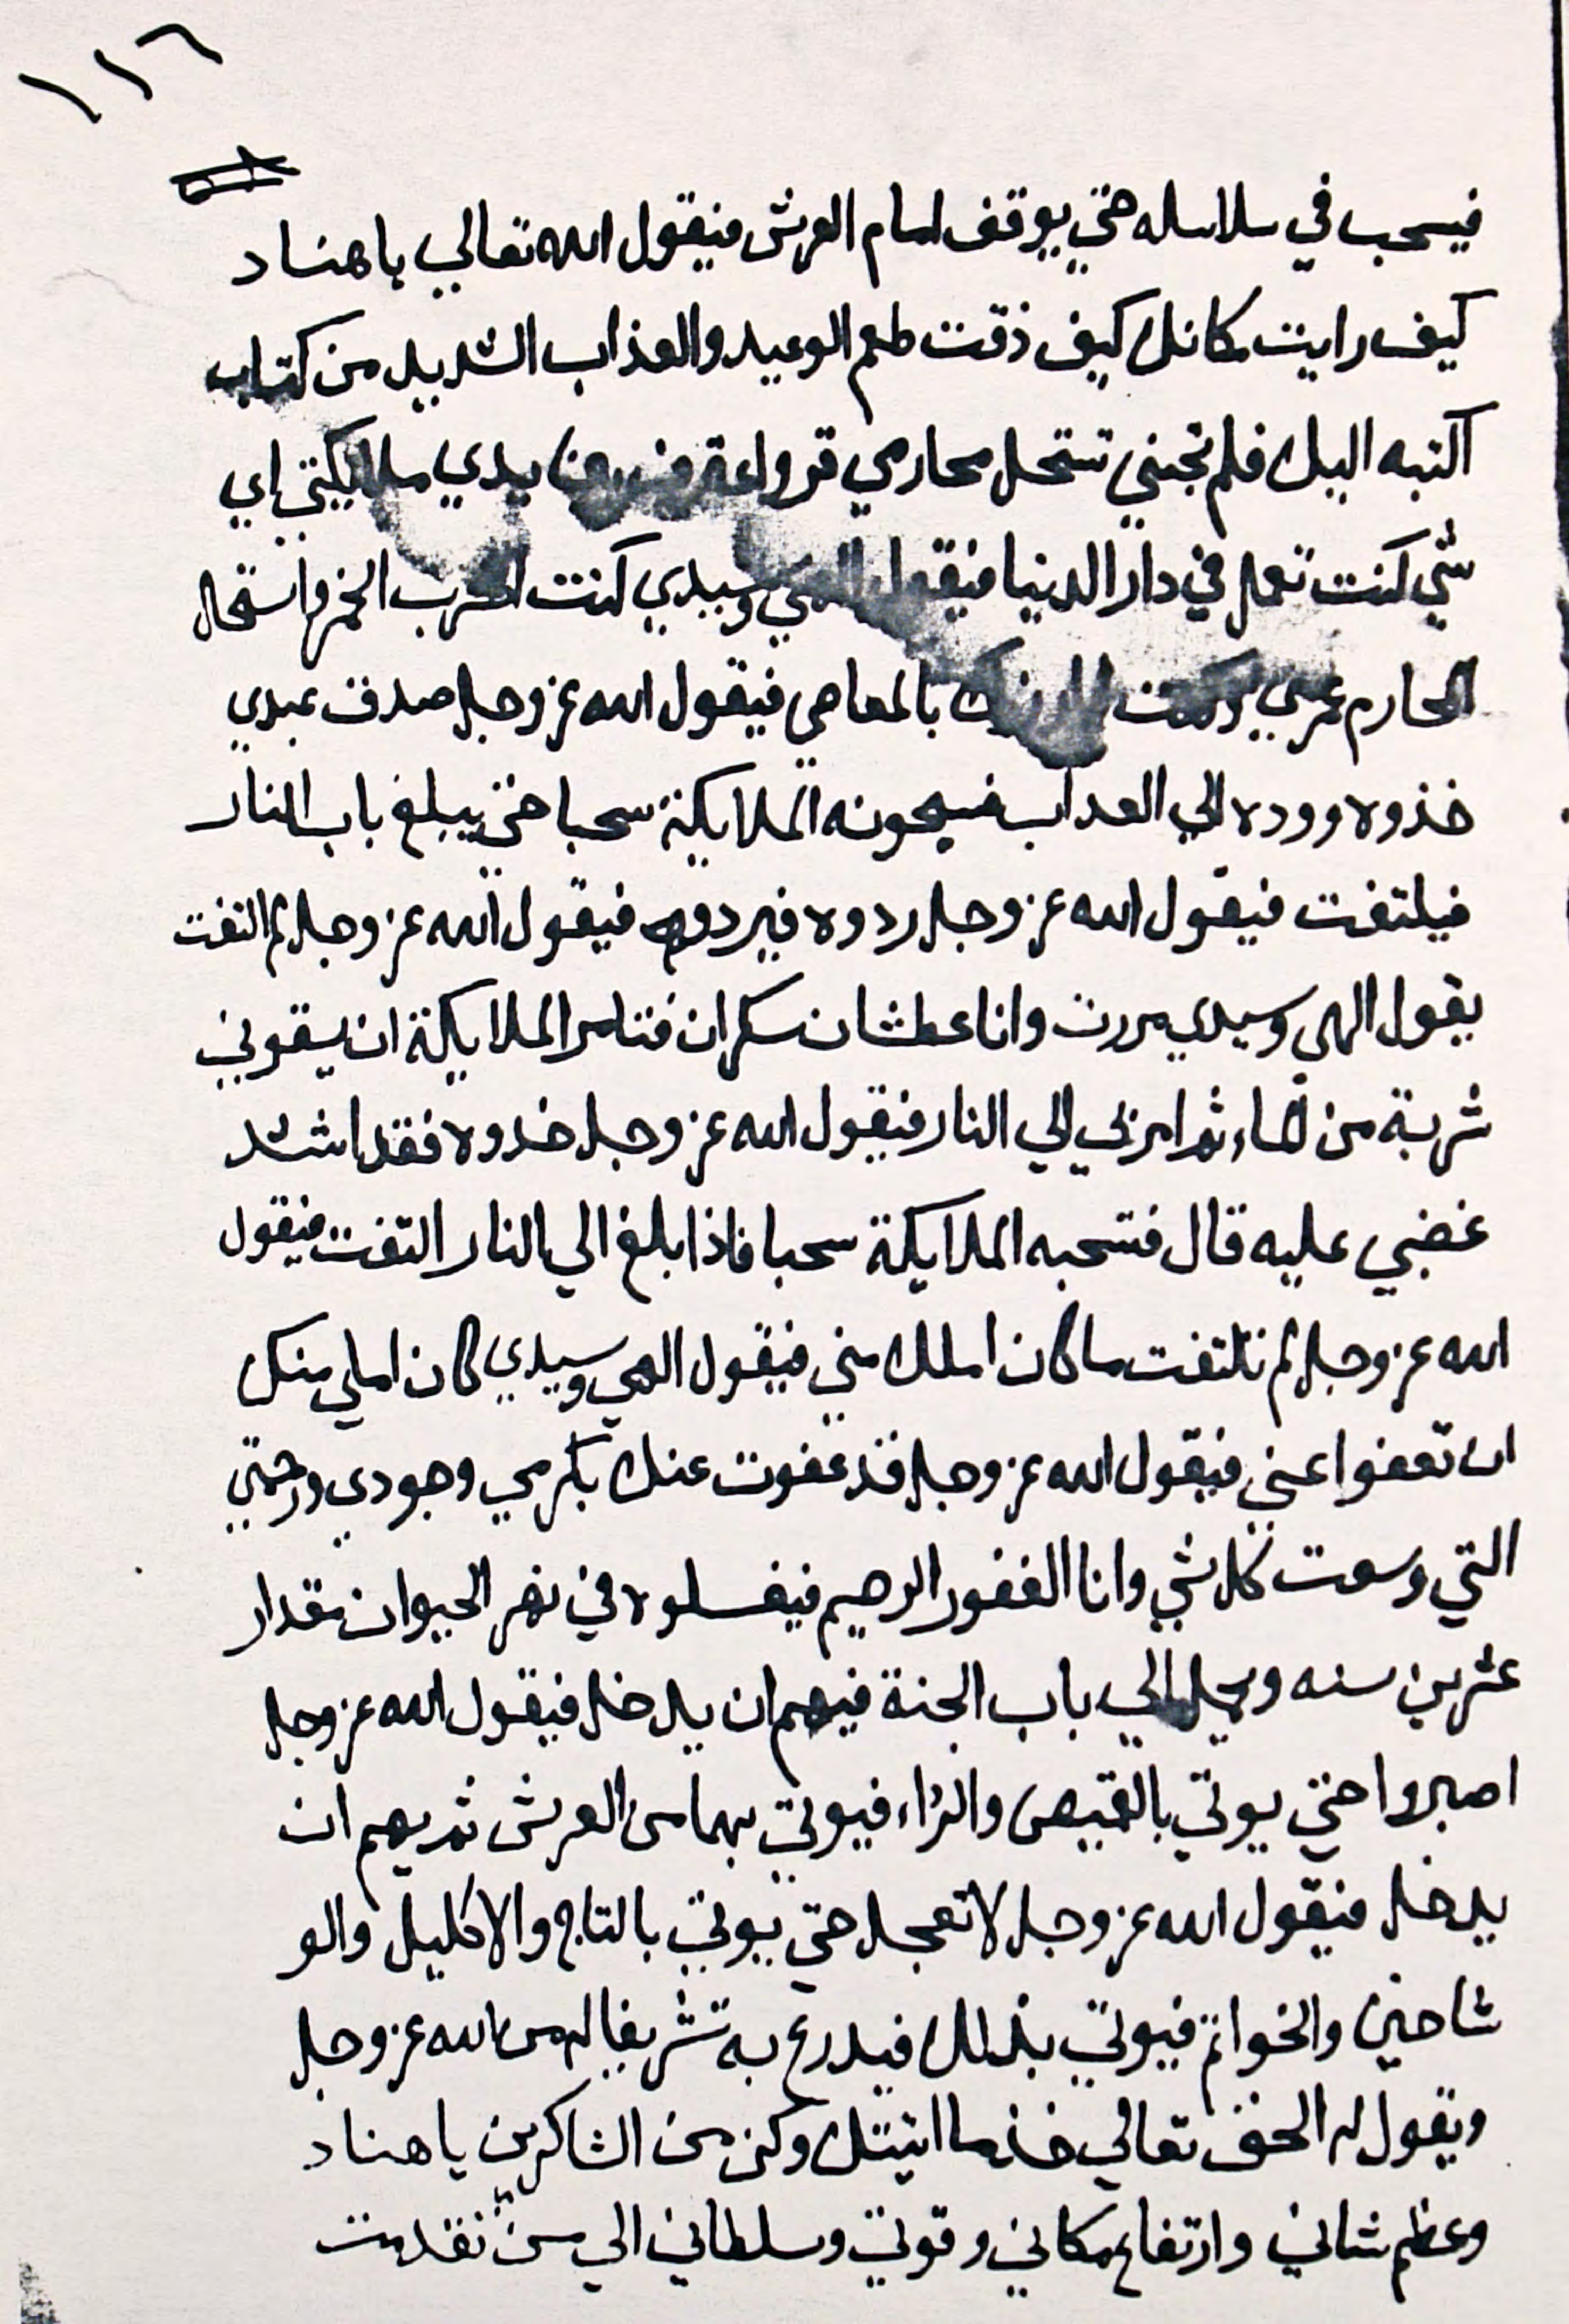 ١١٦
فيسحب في سلاسله حتي يوقف امام العرش فيقول الله تعالي ياهناد
كيف رايت مكانك كيف ذقت طعم الوعيد والعذاب الشديد من كتاب
اكتبه اليك فلم تجبني تستحل محارمي بين يدي ملايكتي اي
شي كنت تعمل في دار الدنيا فيقول الهي وسيدي كنت اشرب الخمر واستحل
المحارم بالمعاصي فيقول الله عز وجل صدق عبدي
خذوه وودوه الي العداب فيسحبونه الملايكة سحبا حتي يبلغ باب النار
فيلتفت فيقول الله عز وجل ردوه فيردوه فيقول الله عز وجل لم التفت
يقول الهي وسيدي مررت وانا عطشان سكران فتامر الملايكة ان يسقوني
شربة من الماء ثم امر بي الي النار فيقول الله عز وجل خدوه فقد اشتد
غضبي عليه قال فتسحبه الملايكة سحبا فاذا بلغ الي النار التفت فيقول
الله عز وجل لم تلتفت ما كان املك مني فيقول الهي وسيدي كان املي منك
ان تعفوا عني فيقول الله عز وجل قد عفوت عنك بكرمي وجودي ورحمتي
التي وسعت كل شي وانا الغفور الرحيم فيغسلوه في نهر الحيوان مقدار
عشرين سنه ويحمل الي باب الجنة فيهم ان يدخل فيقول الله عز وجل
اصبروا حتي يوتي بالقميص والرداء فيوتي بهما من العرش ثم يهم ان
يدخل فيقول الله عز وجل لا تعجل حتي يوتي بالتاج والاكليل والو
شاحين والخواتم فيوتي بذلك فيدرع به تشريفا له من الله عز وجل
ويقول له الحق تعالي خذ ما اتيتك وكن من الشاكرين ياهناد
وعظم شاني وارتفاع مكاني وقوتي وسلطاني الي من تقدمت